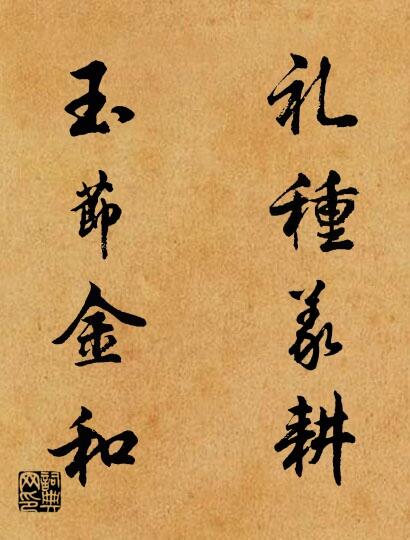 礼種義耕
玉節金和
詞典网印